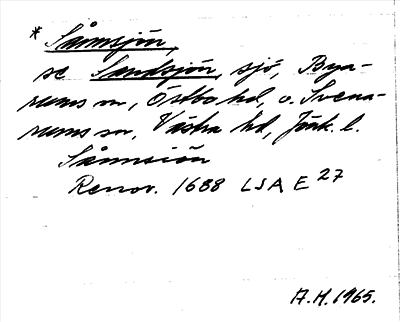 * Sånnsjön,
se Sandsjön, sjö, Bya-
rums sn, Östbo hd, o. Svena-
rums sn, Västra hd, Jönk. l.
Sånnsiön
Renov. 1688 LSA E 27
A.H. 1965.